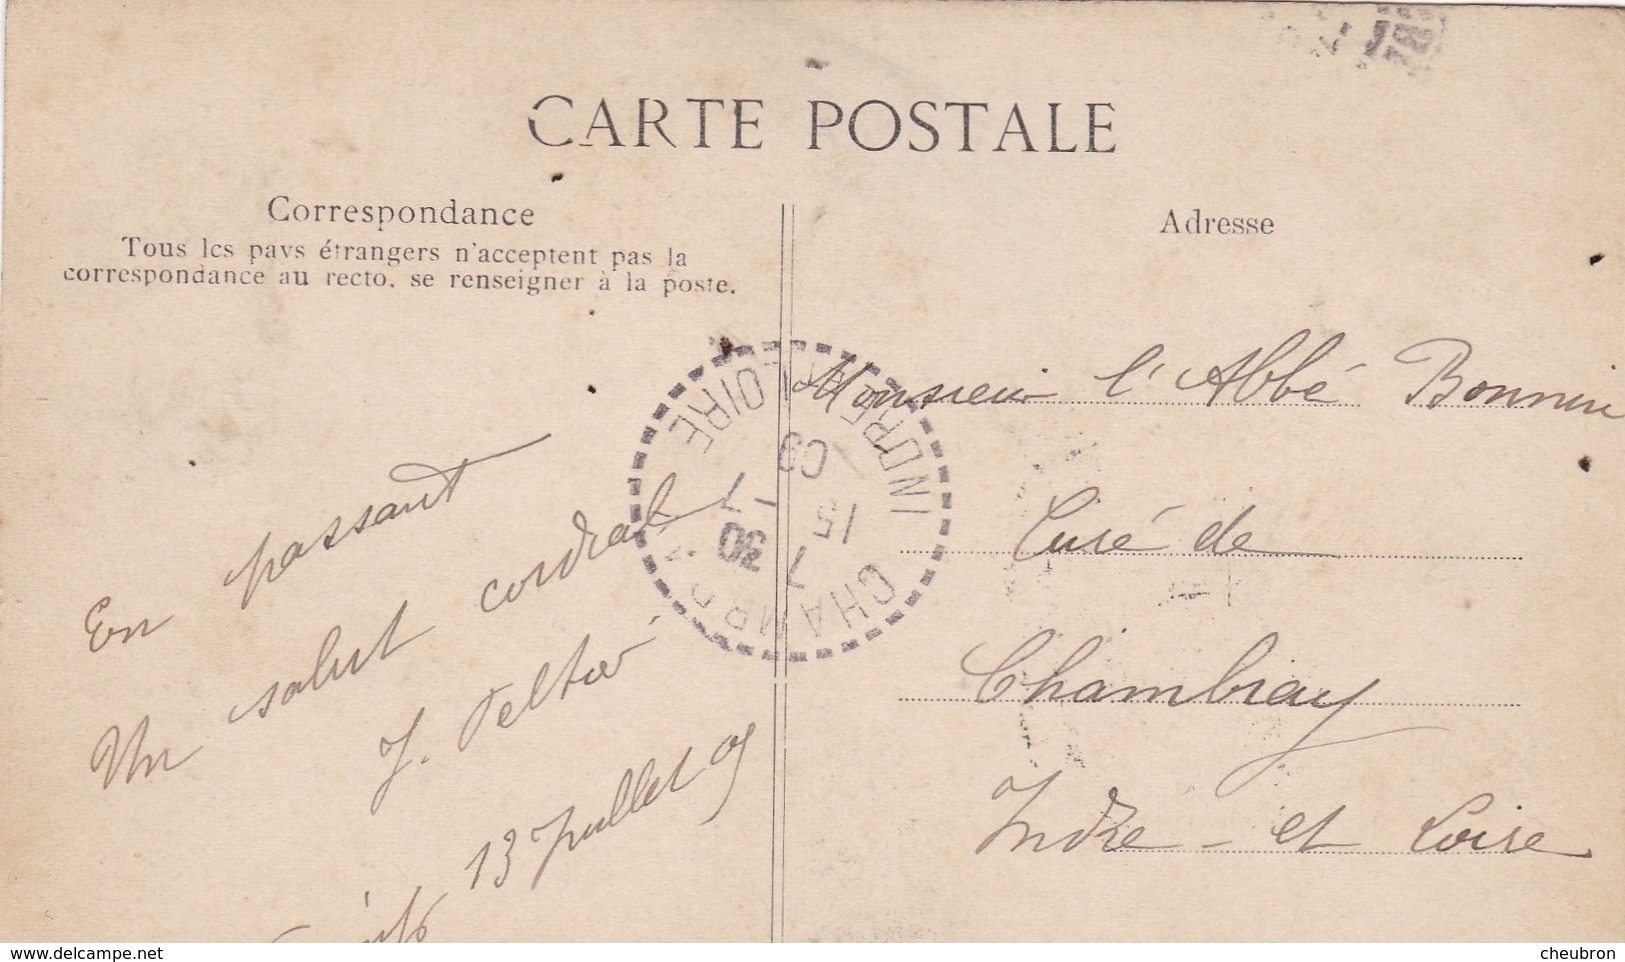 CARTE POSTALE
Correspondance
Tous les pays étrangers n'acceptent pas la
correspondance au recto, se renseigner à la poste.
Adresse
En passant
Un salut cordial
J. Peltier
13 Juillet 09
Monsieur l'Abbé Bonnin
Curé de
Chambray
Indre-et Loire
CHAMBRAY
INDRE ET LOIRE
7 30
15 7
09
delcampe.net
cheubron